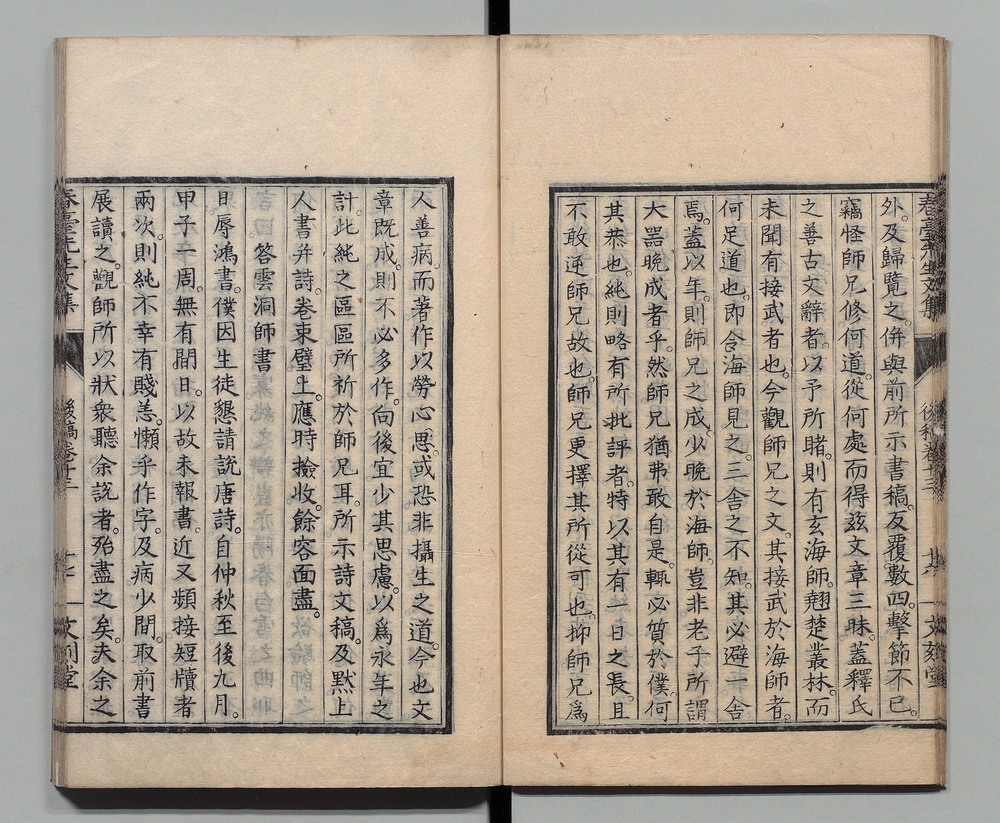 外。及歸覽之。併與前所示書稿。反覆數四。擊節不已。
竊怪師兄修何道。從何處而得茲文章三昧。蓋釋氏
之善古文辭者。以予所睹。則有玄海師。翹楚叢林。而
未聞有接武者也。今觀師兄之文。其接武於海師者。
何足道也。即令海師見之。三舍之不知。其必避一舍
焉。蓋以年。則師兄之成。少晚於海師。豈非老子所謂
大器晚成者乎。然師兄猶弗敢自是。輒必質於僕。何
其恭也。純則略有所批評者。特以其有一日之長。且
不敢逆師兄故也。師兄更擇其所從可也。抑師兄爲
春臺先生文集
後稿卷十三
廿六
文刻堂
人善病。而著作以勞心思。或恐非攝生之道。今也文
章既成。則不必多作。向後宜少其思慮。以爲永年之
計。此純之區區所祈於師兄耳。所示詩文稿。及默上
人書并詩。卷束璧上。應時撿收。餘容面盡。
答雲洞師書
日辱鴻書。僕因生徒懇請說唐詩。自仲秋至後九月。
甲子一周。無有間日。以故未報書。近又頻接短牘者
兩次。則純不幸有賤恙。懶乎作字。及病少間。取前書
展讀之。觀師所以狀衆聽余說者。殆盡之矣。夫余之
春臺先生文集
後稿卷十三
廿七
文刻堂